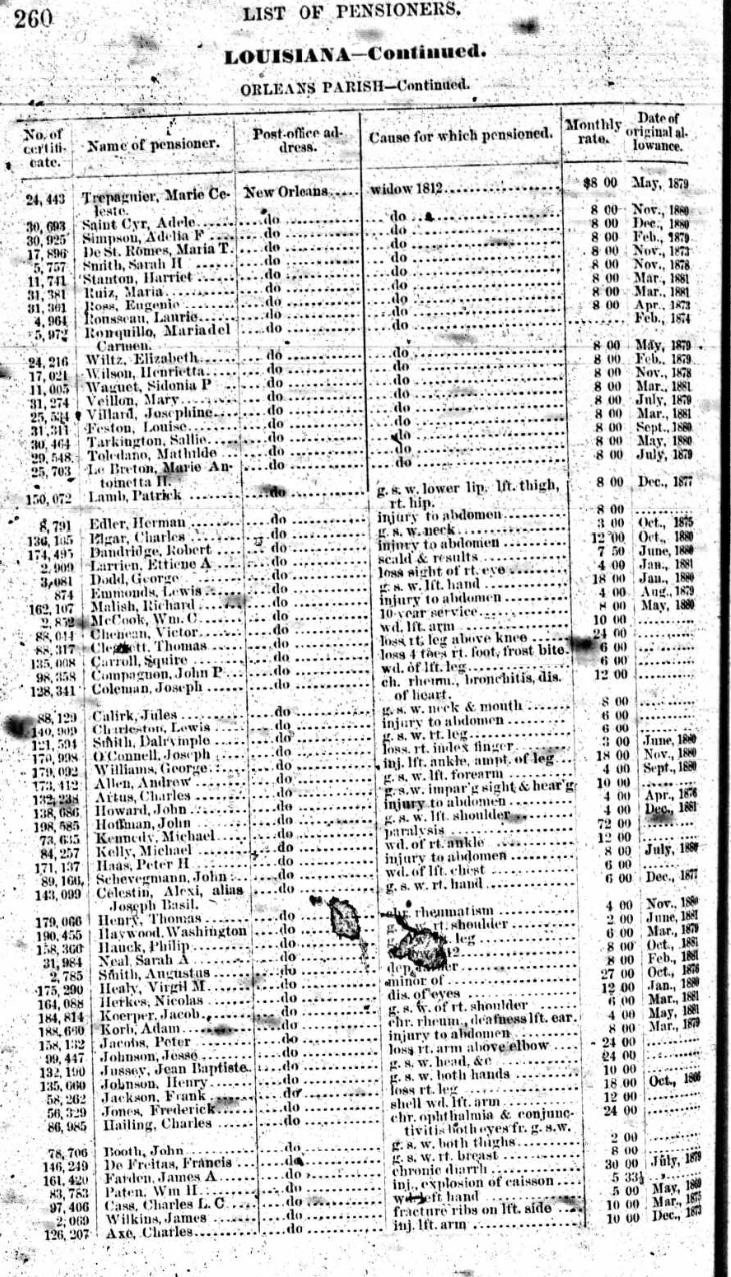 260
LIST OF PENSIONERS.
LOUISIANA—Continued.
ORLEANS PARISH—Continued.
No. of certificate. Name of pensioner. Post-office address. Cause for which pensioned. Monthly rate. Date of original allowance.
24,443 Trepagnier, Marie Ce- New Orleans widow 1812 $8 00 May, 1879
leste.
30,693 Saint Cyr, Adele do do 8 00 Nov., 1880
30,925 Simpson, Adelia F do do 8 00 Dec., 1880
17,896 De St. Romes, Maria T. do do 8 00 Feb., 1879
5,757 Smith, Sarah H do do 8 00 Nov., 1873
11,741 Stanton, Harriet do do 8 00 Nov., 1878
31,381 Ruiz, Maria do do 8 00 Mar., 1881
31,361 Ross, Eugenie do do 8 00 Mar., 1881
4,964 Rousseau, Laurie do do 8 00 Apr., 1873
5,972 Ronquillo, Maria del do do Feb., 1874
Carmen.
24,216 Wiltz, Elizabeth do do 8 00 May, 1879
17,021 Wilson, Henrietta do do 8 00 Feb., 1879
11,005 Waguet, Sidonia P do do 8 00 Nov., 1878
31,274 Veillon, Mary do do 8 00 Mar., 1881
25,534 Villard, Josephine do do 8 00 July, 1879
31,311 Feston, Louise do do 8 00 Mar., 1881
30,464 Tarkington, Sallie do do 8 00 Sept., 1880
29,548 Toledano, Mathilde do do 8 00 May, 1880
25,703 Le Breton, Marie An- do do 8 00 July, 1879
toinetta H.
150,072 Lamb, Patrick do g. s. w. lower lip, lft. thigh, 8 00 Dec., 1877
rt. hip.
8,791 Edler, Herman do injury to abdomen 8 00
136,105 Elgar, Charles do g. s. w. neck 3 00 Oct., 1875
174,495 Dandridge, Robert do injury to abdomen 12 00 Oct., 1880
2,909 Larrien, Ettiene A do scald & results 7 50 June, 1880
3,081 Dodd, George do loss sight of rt. eye 4 00 Jan., 1881
874 Emmonds, Lewis do g. s. w. lft. hand 18 00 Jan., 1880
162,107 Malish, Richard do injury to abdomen 4 00 Aug., 1879
2,852 McCook, Wm. C do 10 year service 8 00 May, 1880
88,044 Chenean, Victor do wd. lft. arm 10 00
88,317 Cleggett, Thomas do loss rt. leg above knee 24 00
135,008 Carroll, Squire do loss 4 toes rt. foot, frost bite 6 00
98,358 Compagnon, John P do wd. of lft. leg 6 00
128,341 Coleman, Joseph do ch. rheum., bronchitis, dis. 12 00
of heart.
88,129 Calirk, Jules do g. s. w. neck & mouth 8 00
140,909 Charleston, Lewis do injury to abdomen 6 00
121,594 Smith, Dalrymple do g. s. w. rt. leg 6 00
170,998 O'Connell, Joseph do loss. rt. index finger 3 00 June, 1880
179,092 Williams, George do inj. lft. ankle, ampt. of leg 18 00 Nov., 1880
173,412 Allen, Andrew do g. s. w. lft. forearm 4 00 Sept., 1880
132,238 Artus, Charles do g. s. w. impar'g sight & hear'g 10 00
138,686 Howard, John do injury to abdomen 4 00 Apr., 1876
198,585 Hoffman, John do g. s. w. lft. shoulder 4 00 Dec., 1881
73,635 Kennedy, Michael do paralysis 72 00
84,257 Kelly, Michael do wd. of rt. ankle 12 00
171,137 Haas, Peter H do injury to abdomen 8 00 July, 1880
89,166 Schevegmann, John do wd. of lft. chest 6 00
143,099 Celestin, Alexi, alias do g. s. w. rt. hand 6 00 Dec., 1877
Joseph Basil.
179,066 Henry, Thomas do chr. rheumatism 4 00 Nov., 1880
190,455 Haywood, Washington do g. rt. shoulder 2 00 June, 1881
158,360 Hauck, Philip do g. leg 6 00 Mar., 1879
31,984 Neal, Sarah A do 8 00 Oct., 1881
2,785 Smith, Augustus do dep. father 8 00 Feb., 1881
175,290 Healy, Virgil M do minor of 27 00 Oct., 1876
164,088 Herkes, Nicolas do dis. of eyes 12 00 Jan., 1880
184,814 Koerper, Jacob do g. s. w. of rt. shoulder 6 00 Mar., 1881
188,660 Korb, Adam do chr. rheum., deafness lft. ear. 4 00 May, 1881
158,132 Jacobs, Peter do injury to abdomen 8 00 Mar., 1879
99,447 Johnson, Jesse do loss rt. arm above elbow 24 00
132,190 Jussey, Jean Baptiste do g. s. w. head, &c 24 00
135,060 Johnson, Henry do g. s. w. both hands 10 00
58,262 Jackson, Frank do loss rt. leg 18 00 Oct., 1866
56,329 Jones, Frederick do shell wd. lft. arm 12 00
86,985 Hailing, Charles do chr. ophthalmia & conjunc- 24 00
tivitis both eyes fr. g. s. w.
78,706 Booth, John do g. s. w. both thighs 2 00
146,249 De Freitas, Francis do g. s. w. rt. breast 8 00
161,420 Farden, James A do chronic diarrh 30 00 July, 1879
83,783 Paten, Wm H do inj., explosion of caisson 5 33⅓
97,406 Cass, Charles L. C do wd. left hand 5 00 May, 1880
2,069 Wilkins, James do fracture ribs on lft. side 10 00 Mar., 1875
126,207 Axe, Charles do inj. lft. arm 10 00 Dec., 1873